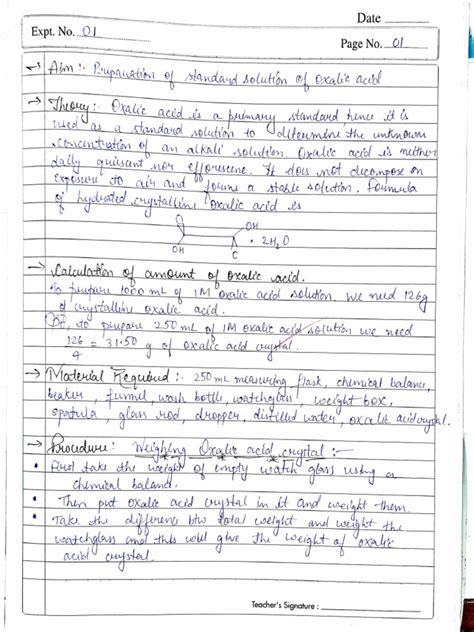 Date
Expt. No. 01
Page No. 01
→ Aim :- Preparation of standard solution of Oxalic acid
→ Theory :- Oxalic acid is a primary standard hence it is
used as a standard solution to determine the unknown
concentration of an alkali solution. Oxalic acid is neither
nor efflorescene. It does not decompose on
exposure to air and forms a stable solution. Formula
of hydrated crystalline oxalic acid is
OH
OH
C
• 2H2O
→ Calculation of amount of oxalic acid.
To prepare 1000 mL of 1M oxalic acid solution. We need 126g
of crystalline oxalic acid.
to prepare 250 mL of 1M oxalic acid solution we need
126/4 = 31.50 g of oxalic acid crystal.
→ Material Required :- 250 mL measuring flask, chemical balance,
beaker, funnel, wash bottle, watchglass, weight box,
spatula, glass rod, dropper, distilled water, oxalic acid crystal.
→ Procedure : Weighing Oxalic acid crystal :-
• First take the weight of empty watch glass using a
chemical balance.
• Then put oxalic acid crystal in it and weight them.
• Take the difference btw total weight and weight the
watchglass and this will give the weight of oxalic
acid crystal.
Teacher's Signature :